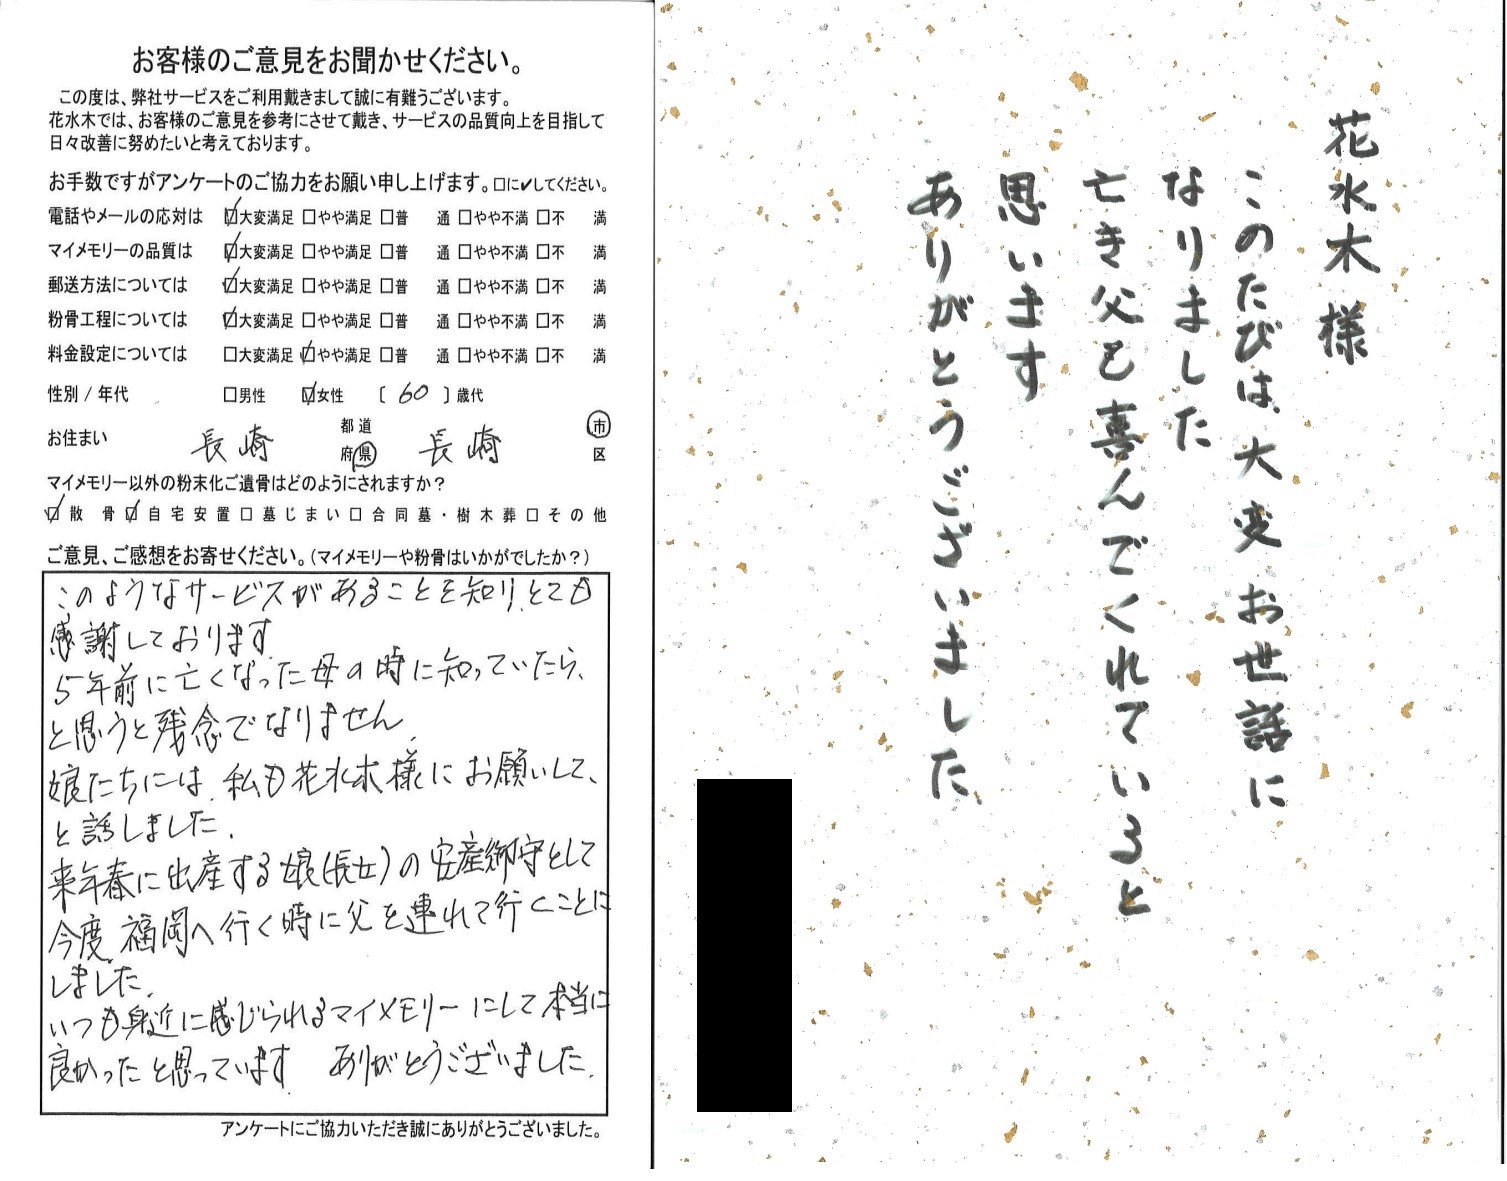 お客様のご意見をお聞かせください。
この度は、弊社サービスをご利用戴きまして誠に有難うございます。
花水木では、お客様のご意見を参考にさせて戴き、サービスの品質向上を目指して
日々改善に努めたいと考えております。
お手数ですがアンケートのご協力をお願い申し上げます。□に✔してください。
電話やメールの応対は ☑大変満足 □やや満足 □普 通 □やや不満 □不 満
マイメモリーの品質は ☑大変満足 □やや満足 □普 通 □やや不満 □不 満
郵送方法については ☑大変満足 □やや満足 □普 通 □やや不満 □不 満
粉骨工程については ☑大変満足 □やや満足 □普 通 □やや不満 □不 満
料金設定については □大変満足 ☑やや満足 □普 通 □やや不満 □不 満
性別 / 年代 □男性 ☑女性 〔 60 〕歳代
お住まい 長崎 都道府県 長崎 市区
マイメモリー以外の粉末化ご遺骨はどのようにされますか？
☑散 骨 ☑自宅安置 □墓じまい □合同墓・樹木葬 □その他
ご意見、ご感想をお寄せください。(マイメモリーや粉骨はいかがでしたか？)
このようなサービスがあることを知り、とても
感謝しております
5年前に亡くなった母の時に知っていたら、
と思うと残念でなりません。
娘たちには、私も花水木様にお願いして、
と話しました。
来年春に出産する娘(長女)の安産御守として
今度、福岡へ行く時に父を連れて行くことに
しました。
いつも身近に感じられるマイメモリーにして本当に
良かったと思っています ありがとうございました。
アンケートにご協力いただき誠にありがとうございました。
花水木様
このたびは、大変お世話に
なりました
亡き父も喜んでくれていると
思います
ありがとうございました。